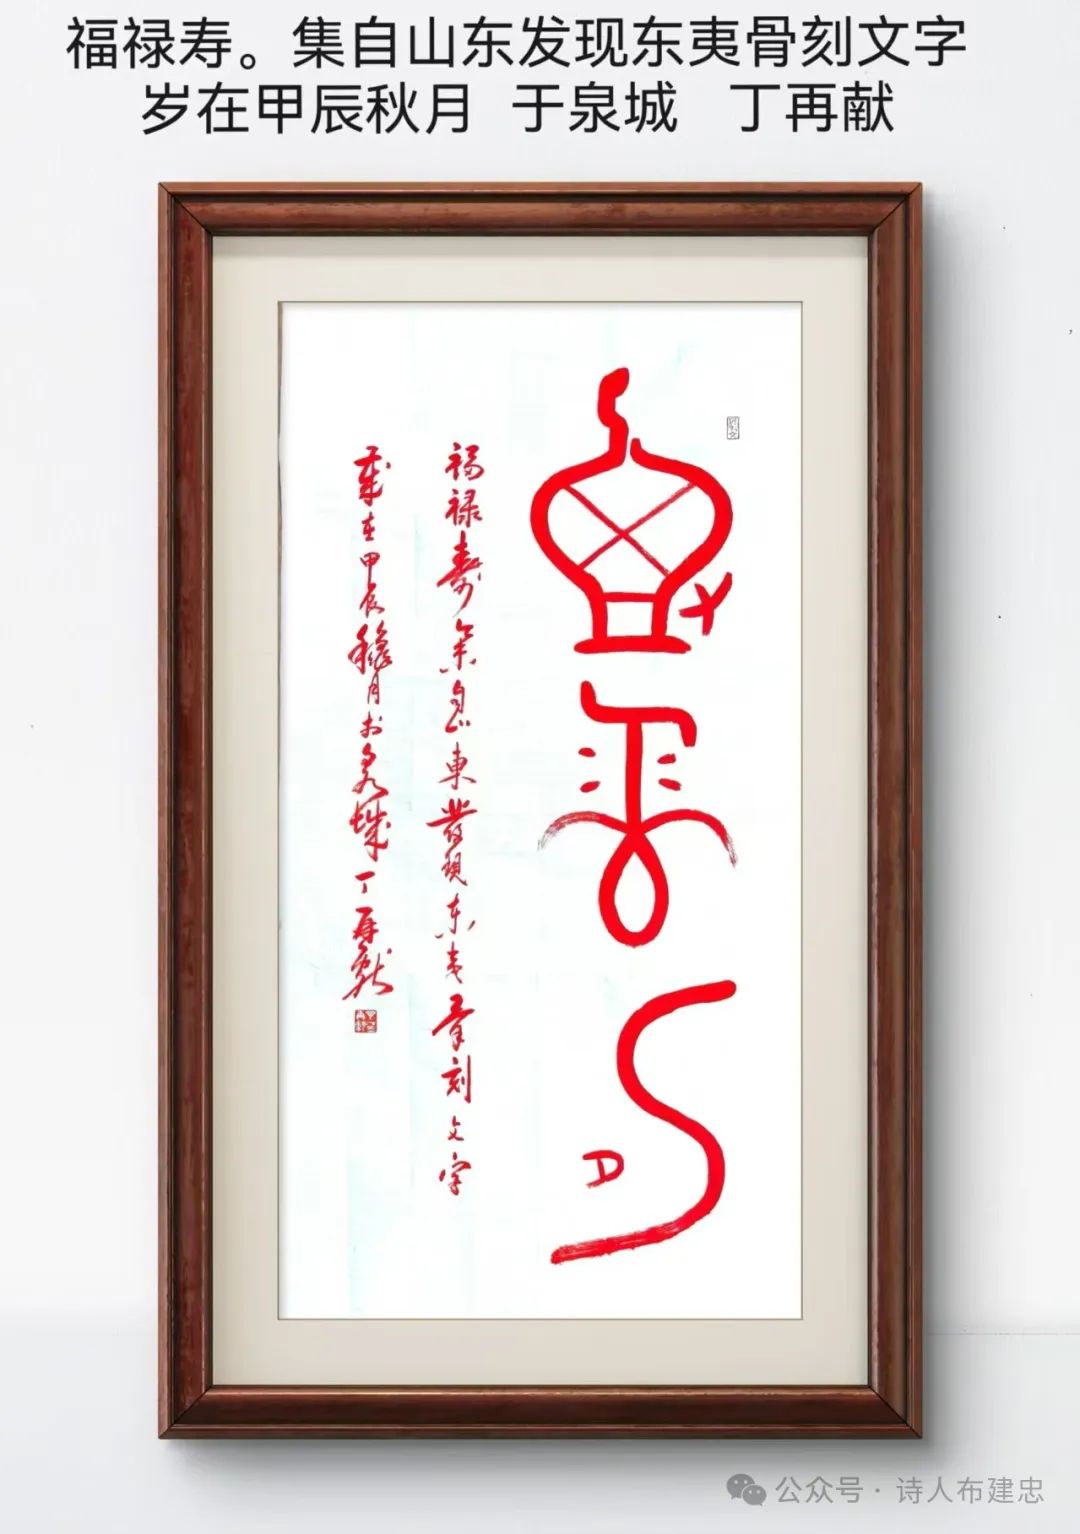 福禄寿。集自山东发现东夷骨刻文字
岁在甲辰秋月 于泉城 丁再献
福禄寿集自山東發現东夷骨刻文字
歲在甲辰穐月於泉城丁再献
公众号 · 诗人布建忠